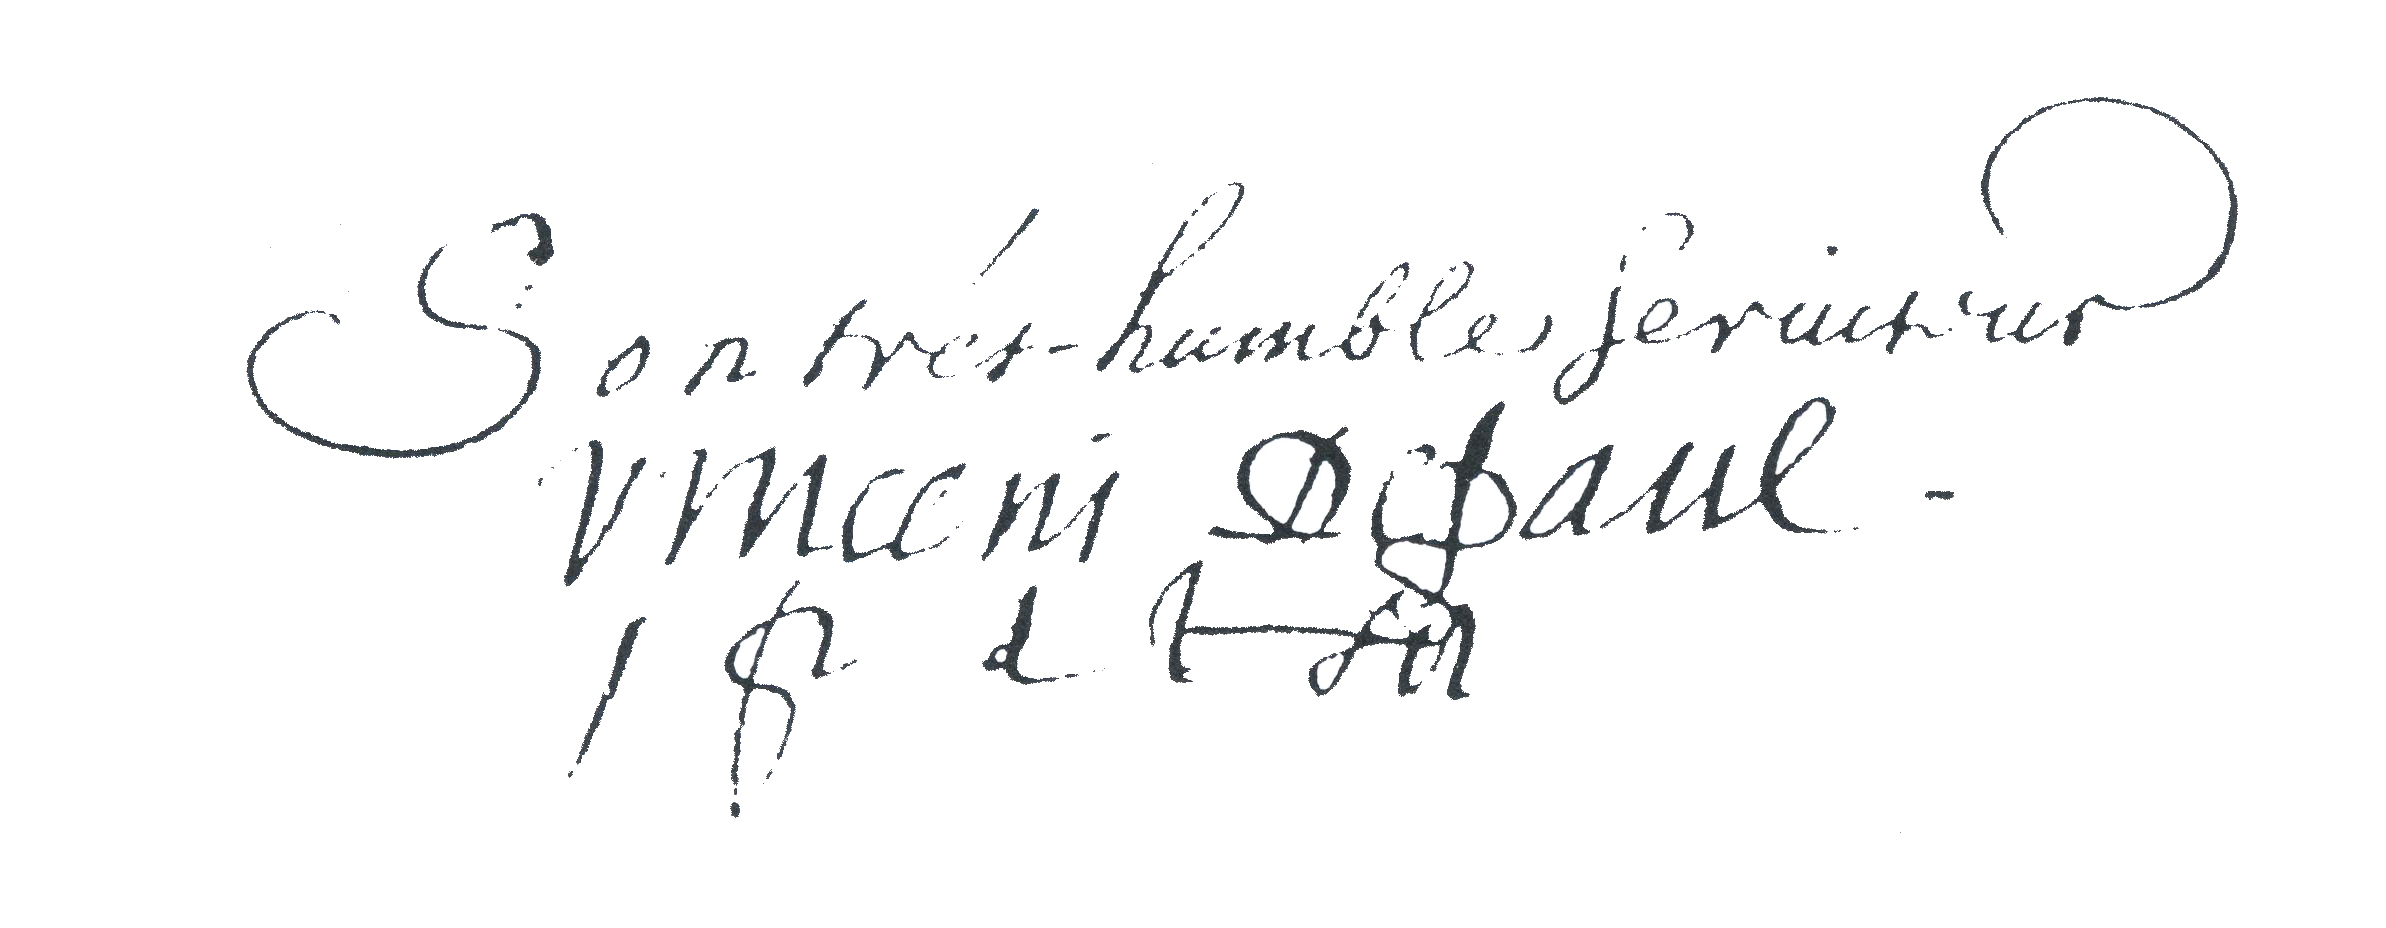 Son trés-humble seruiteur
Vincent Depaul -
i p d l m